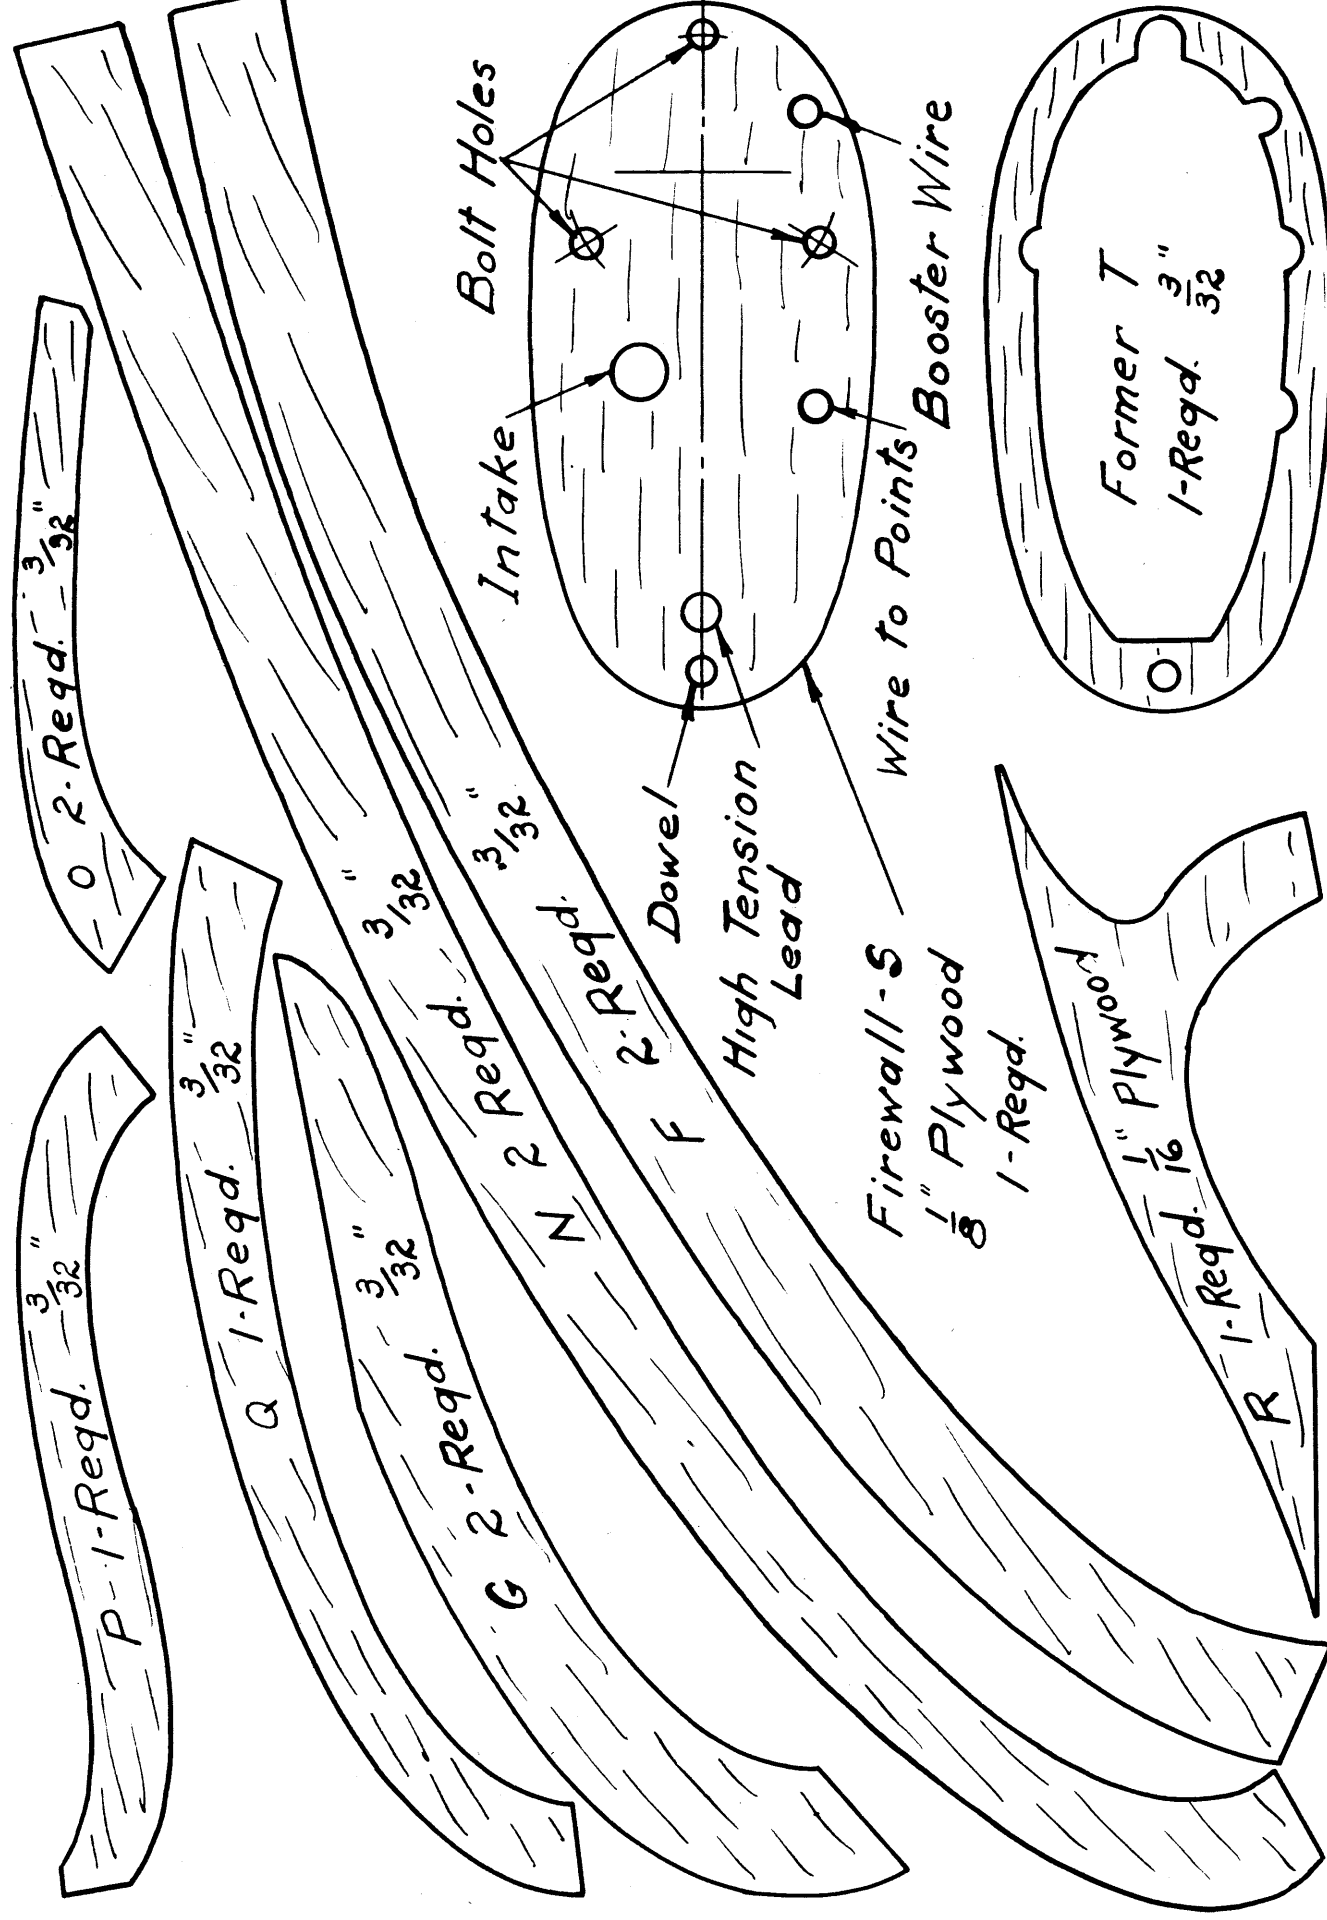 O 2-Reqd. 3/32"
P-1-Reqd. 3/32"
Q 1-Reqd. 3/32"
G 2-Reqd. 3/32"
N 2 Reqd. 3/32"
F 2-Reqd. 3/32"
Bolt Holes
Intake
Dowel
High Tension
Lead
Wire to Points
Booster Wire
Firewall-S
1/8" Plywood
1-Reqd.
Former T
1-Reqd. 3/32"
R 1-Reqd. 1/16" Plywood